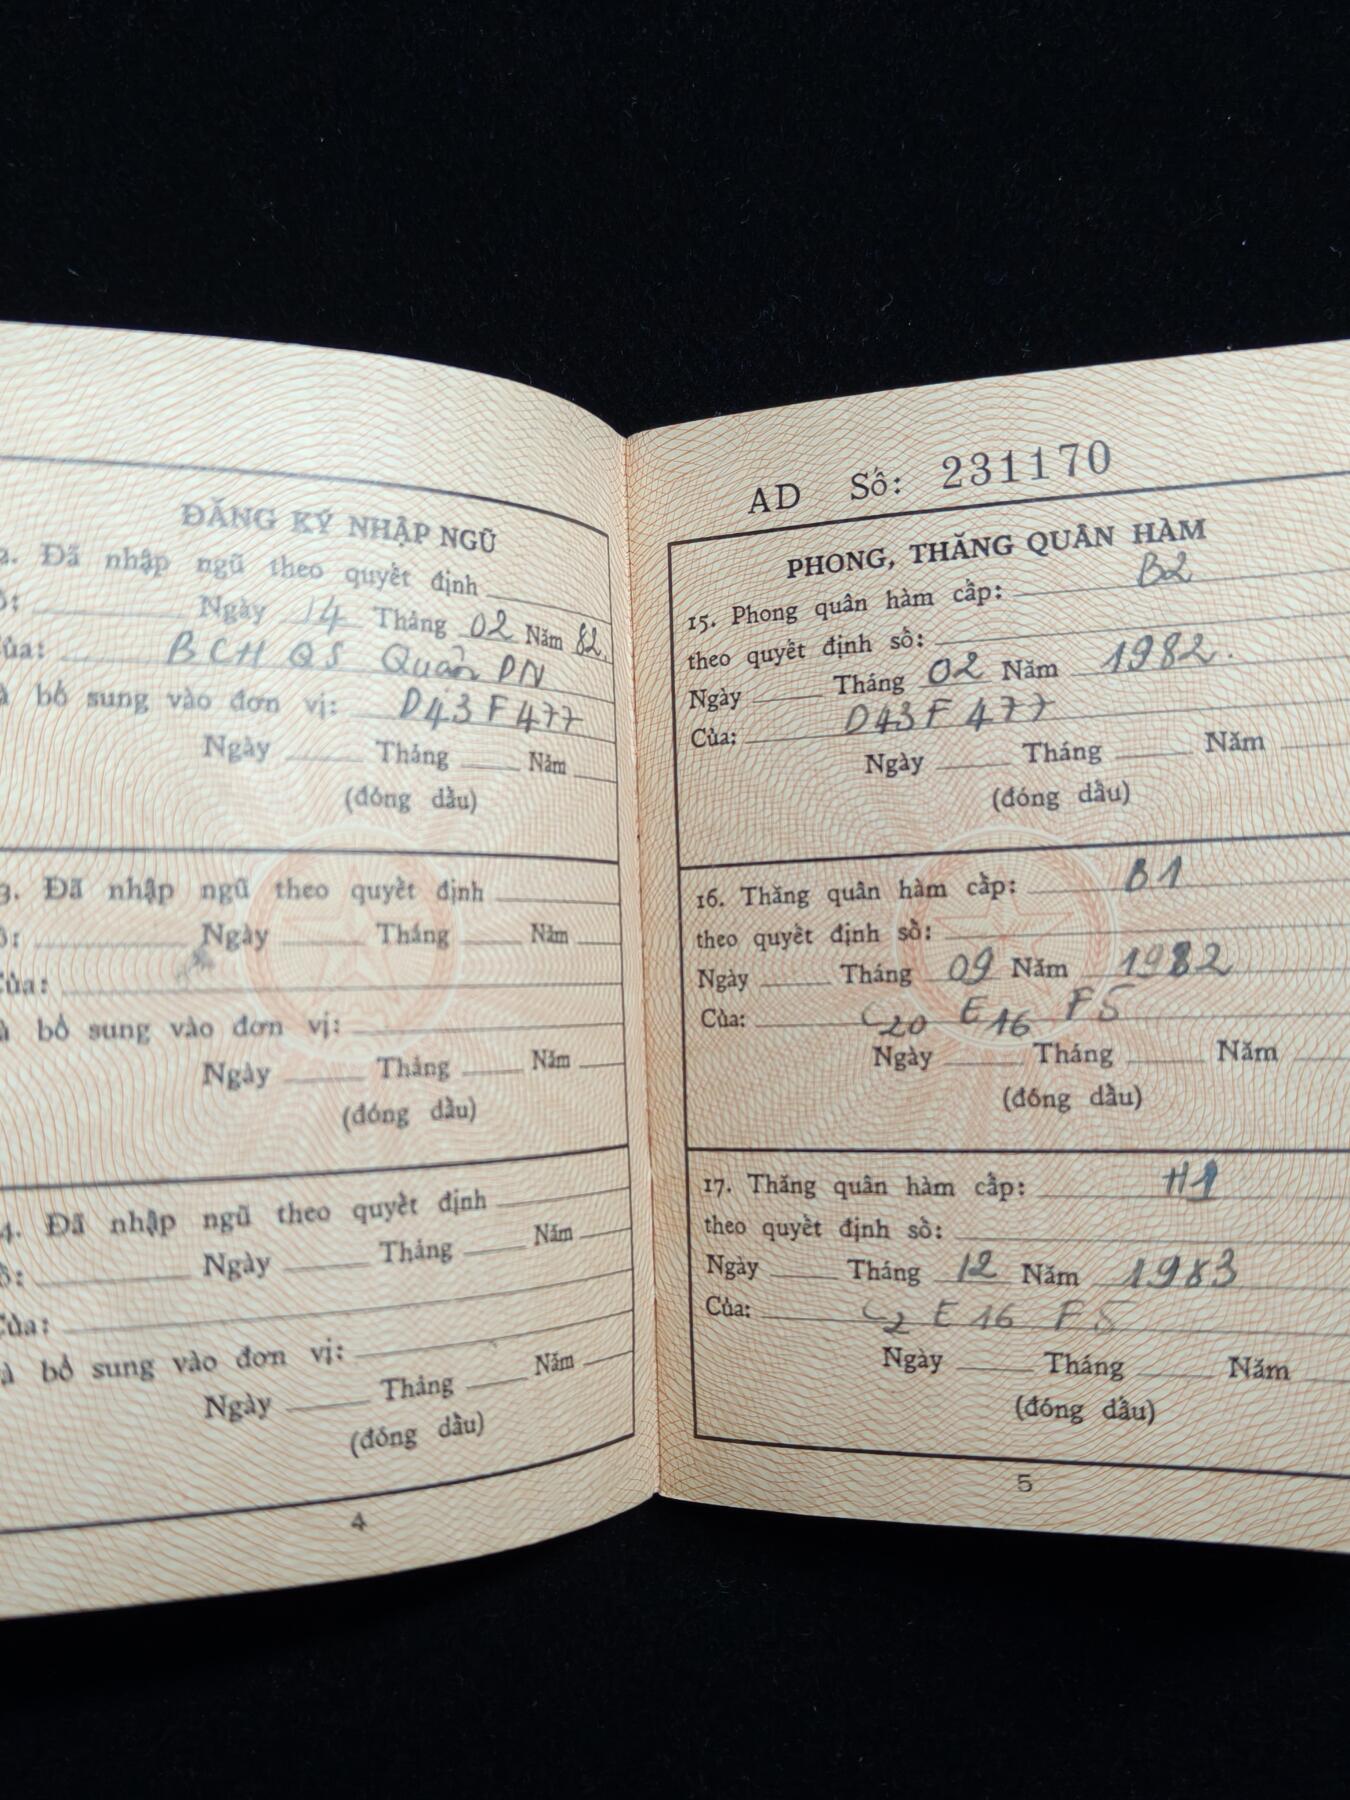 ĐĂNG KÝ NHẬP NGŨ
2. Đã nhập ngũ theo quyết định
Ngày 14 Tháng 02 Năm 82.
Của: BCH QS Quân ĐN
bổ sung vào đơn vị: D43 F477
Ngày Tháng Năm
(đóng dấu)
3. Đã nhập ngũ theo quyết định
Ngày Tháng Năm
Của:
bổ sung vào đơn vị:
Ngày Tháng Năm
(đóng dấu)
4. Đã nhập ngũ theo quyết định
Ngày Tháng Năm
Của:
bổ sung vào đơn vị:
Ngày Tháng Năm
(đóng dấu)
4
AD Số: 231170
PHONG, THĂNG QUÂN HÀM
15. Phong quân hàm cấp: B2
theo quyết định số:
Ngày Tháng 02 Năm 1982.
Của: D43 F477
Ngày Tháng Năm
(đóng dấu)
16. Thăng quân hàm cấp: B1
theo quyết định số:
Ngày Tháng 09 Năm 1982
Của: C20 E16 F5
Ngày Tháng Năm
(đóng dấu)
17. Thăng quân hàm cấp: H1
theo quyết định số:
Ngày Tháng 12 Năm 1983
Của: C2 E16 F5
Ngày Tháng Năm
(đóng dấu)
5